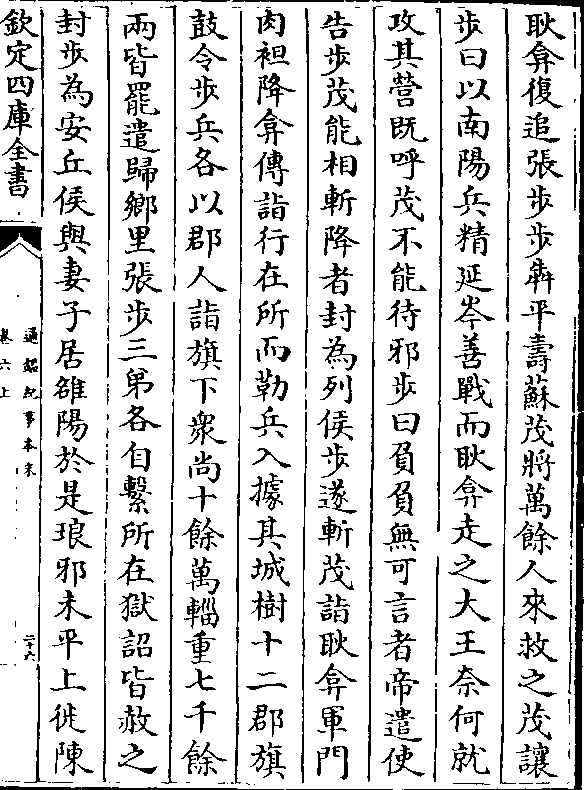 耿弇復追張步步犇平壽蘇茂將萬餘人來救之茂讓
步曰以南陽兵精延岑善戰而耿弇走之大王奈何就
攻其營既呼茂不能待邪步曰負負無可言者帝遣使
告步茂能相斬降者封為列侯步遂斬茂詣耿弇軍門
肉袒降弇傳詣行在所而勒兵入據其城樹十二郡旗
鼓令步兵各以郡人詣旗下衆尚十餘萬輜重七千餘
兩皆罷遣歸鄉里張步三弟各自繫所在獄詔皆赦之
封步為安丘侯與妻子居雒陽於是琅邪未平上徙陳
欽定四庫全書
通鑑紀事本末
卷六上
二十六